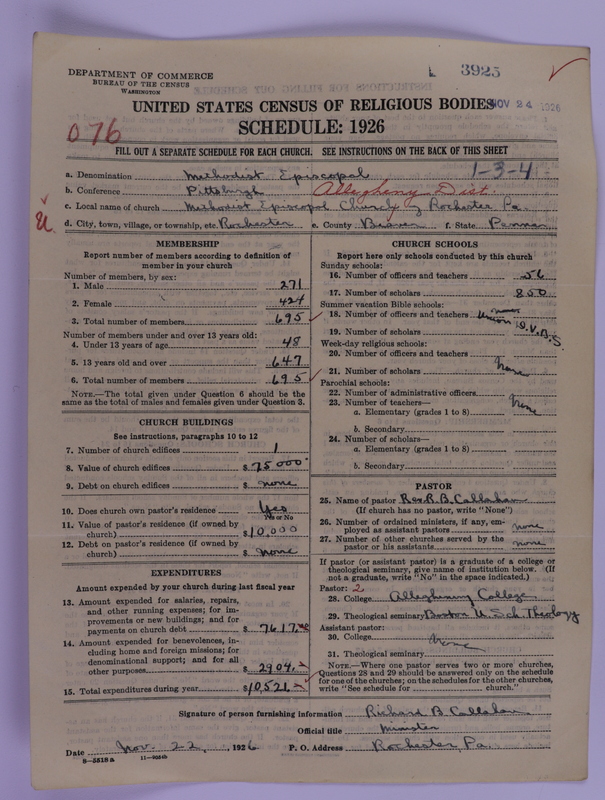 3925
DEPARTMENT OF COMMERCE
BUREAU OF THE CENSUS
WASHINGTON
UNITED STATES CENSUS OF RELIGIOUS BODIES
NOV 24 1926
SCHEDULE: 1926
076
FILL OUT A SEPARATE SCHEDULE FOR EACH CHURCH. SEE INSTRUCTIONS ON THE BACK OF THIS SHEET
1-3-4
a. Denomination Methodist Episcopal
b. Conference Pittsburgh Allegheny Dist.
c. Local name of church Methodist Episcopal Church of Rochester Pa.
d. City, town, village, or township, etc. Rochester e. County Beaver f. State Penna
MEMBERSHIP
Report number of members according to definition of member in your church
Number of members, by sex:
1. Male 271
2. Female 424
3. Total number of members 695
Number of members under and over 13 years old:
4. Under 13 years of age 48
5. 13 years old and over 647
6. Total number of members 695
NOTE.—The total given under Question 6 should be the same as the total of males and females given under Question 3.
CHURCH BUILDINGS
See instructions, paragraphs 10 to 12
7. Number of church edifices 1
8. Value of church edifices $ 75000
9. Debt on church edifices $ none
10. Does church own pastor's residence Yes
Yes or No
11. Value of pastor's residence (if owned by church) $ 10,000
12. Debt on pastor's residence (if owned by church) $ none
EXPENDITURES
Amount expended by your church during last fiscal year
13. Amount expended for salaries, repairs, and other running expenses; for improvements or new buildings; and for payments on church debt $ 7617.
14. Amount expended for benevolences, including home and foreign missions; for denominational support; and for all other purposes $ 2904.
15. Total expenditures during year $ 10,521.
CHURCH SCHOOLS
Report here only schools conducted by this church
Sunday schools:
16. Number of officers and teachers 56
17. Number of scholars 850
Summer vacation Bible schools:
18. Number of officers and teachers none
Union D.V.B.S.
19. Number of scholars
Week-day religious schools:
20. Number of officers and teachers
21. Number of scholars None
Parochial schools:
22. Number of administrative officers
23. Number of teachers— None
a. Elementary (grades 1 to 8)
b. Secondary
24. Number of scholars—
a. Elementary (grades 1 to 8)
b. Secondary
PASTOR
25. Name of pastor Rev R. B. Callahan
(If church has no pastor, write "None")
26. Number of ordained ministers, if any, employed as assistant pastors none
27. Number of other churches served by the pastor or his assistants none
If pastor (or assistant pastor) is a graduate of a college or theological seminary, give name of institution below. (If not a graduate, write "No" in the space indicated.)
Pastor: 2
28. College Allegheny College
29. Theological seminary Boston U. Sch Theology
Assistant pastor:
30. College None
31. Theological seminary
NOTE.—Where one pastor serves two or more churches, Questions 28 and 29 should be answered only on the schedule for one of the churches; on the schedules for the other churches, write "See schedule for church."
Signature of person furnishing information Richard B. Callahan
Official title Minister
Date Nov. 22, 1926 P. O. Address Rochester, Pa.
8-5518a 11-9